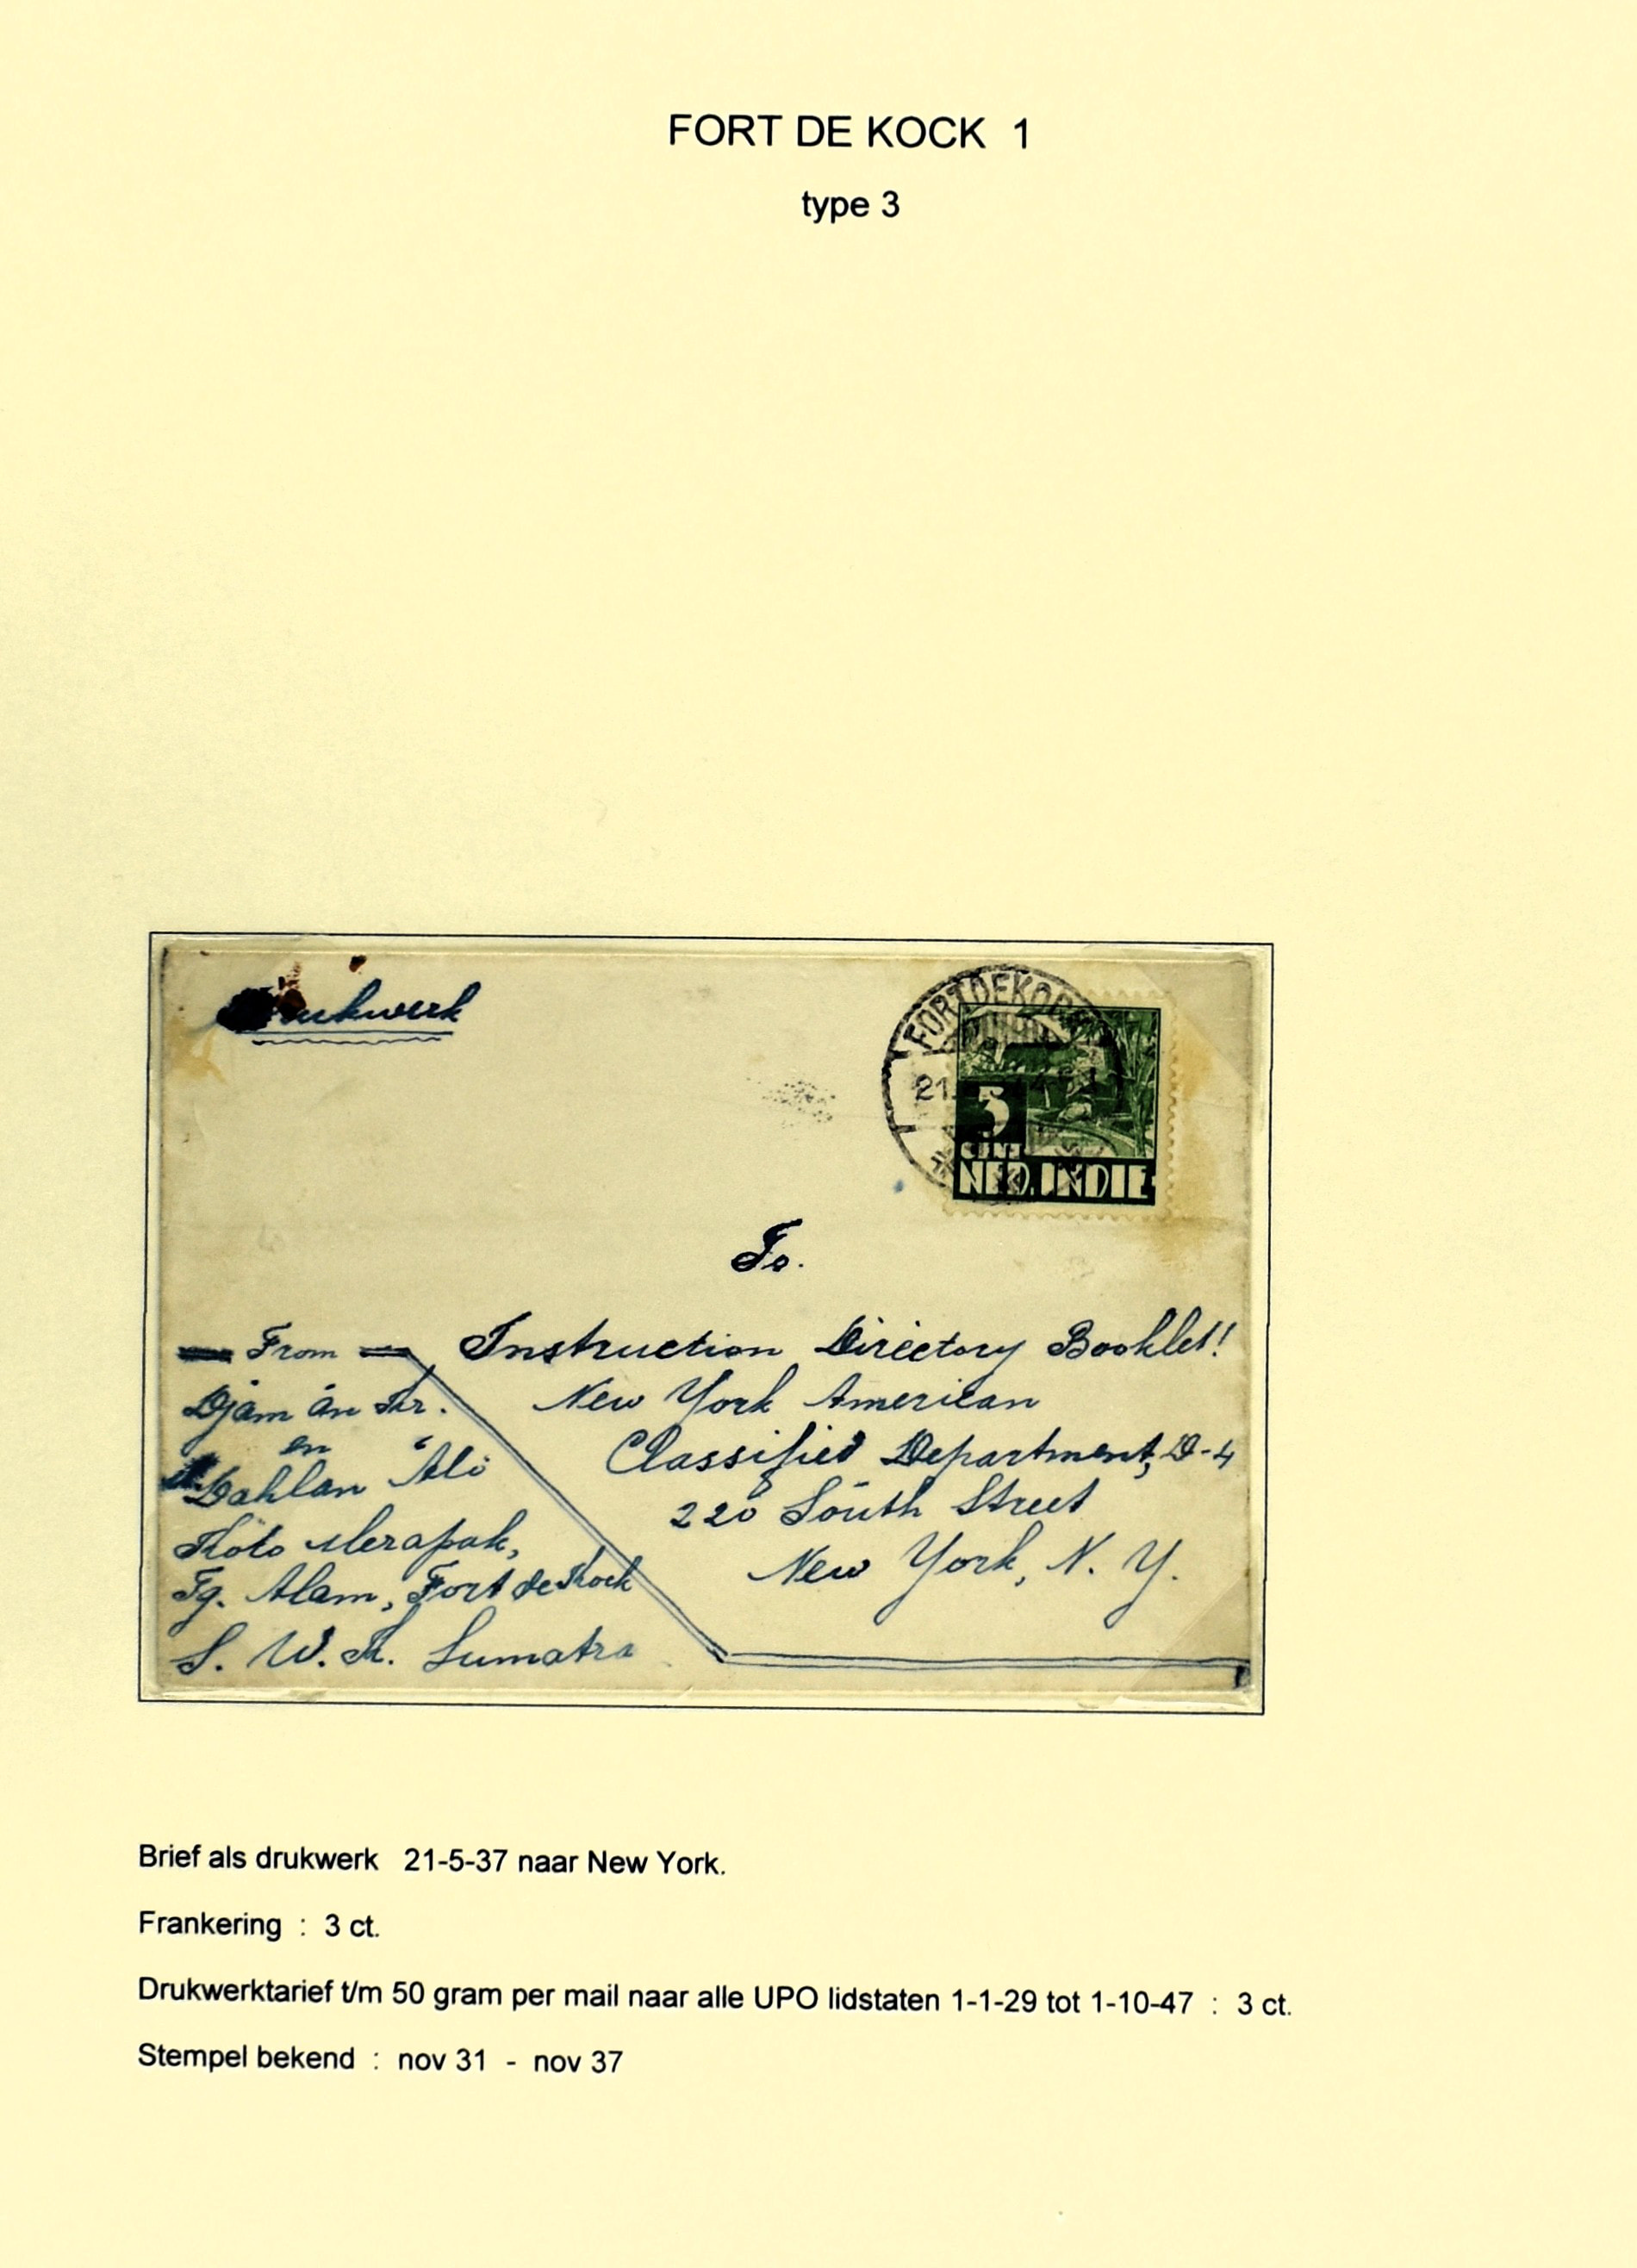 FORT DE KOCK 1
type 3
Drukwerk
FORT DE KOCK
21.
3
CENT
NED. INDIE
To.
Instruction Directory Booklet!
New York American
Classified Department, D-4
220 South Street
New York, N. Y.
From
Djam an Kr.
en
Dahlan Ali
Koto Merapak,
Tg. Alam, Fort de Kock
S. W. K. Sumatra
Brief als drukwerk 21-5-37 naar New York.
Frankering : 3 ct.
Drukwerktarief t/m 50 gram per mail naar alle UPO lidstaten 1-1-29 tot 1-10-47 : 3 ct.
Stempel bekend : nov 31 - nov 37